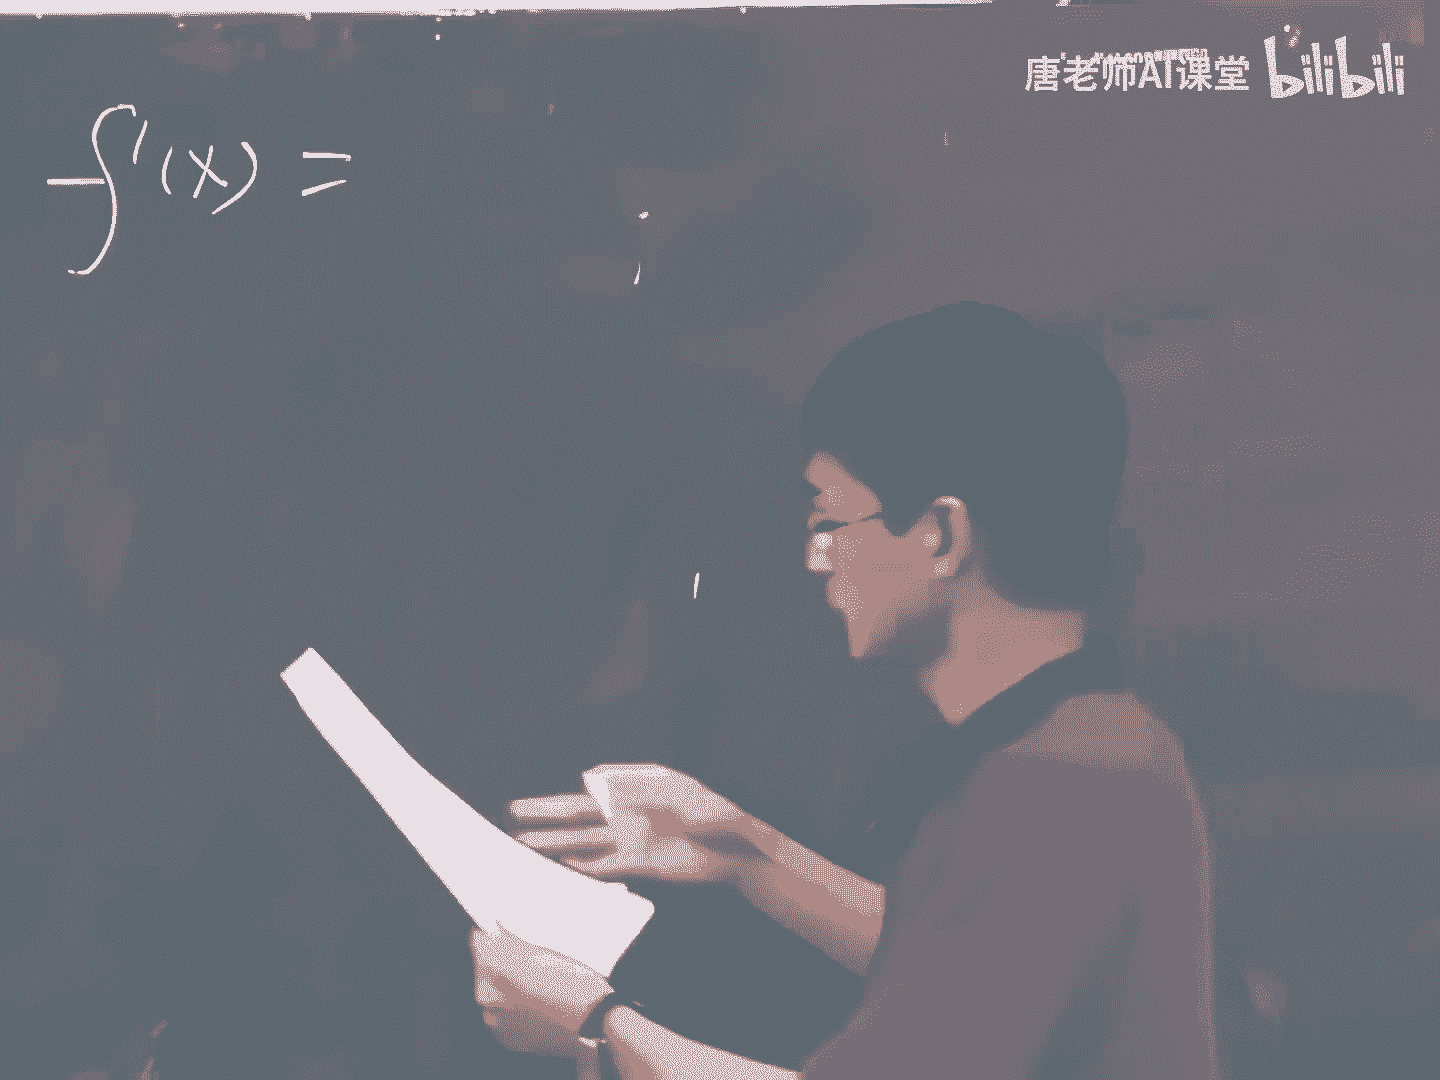 唐老师AI课堂 bilibili
f'(x) =